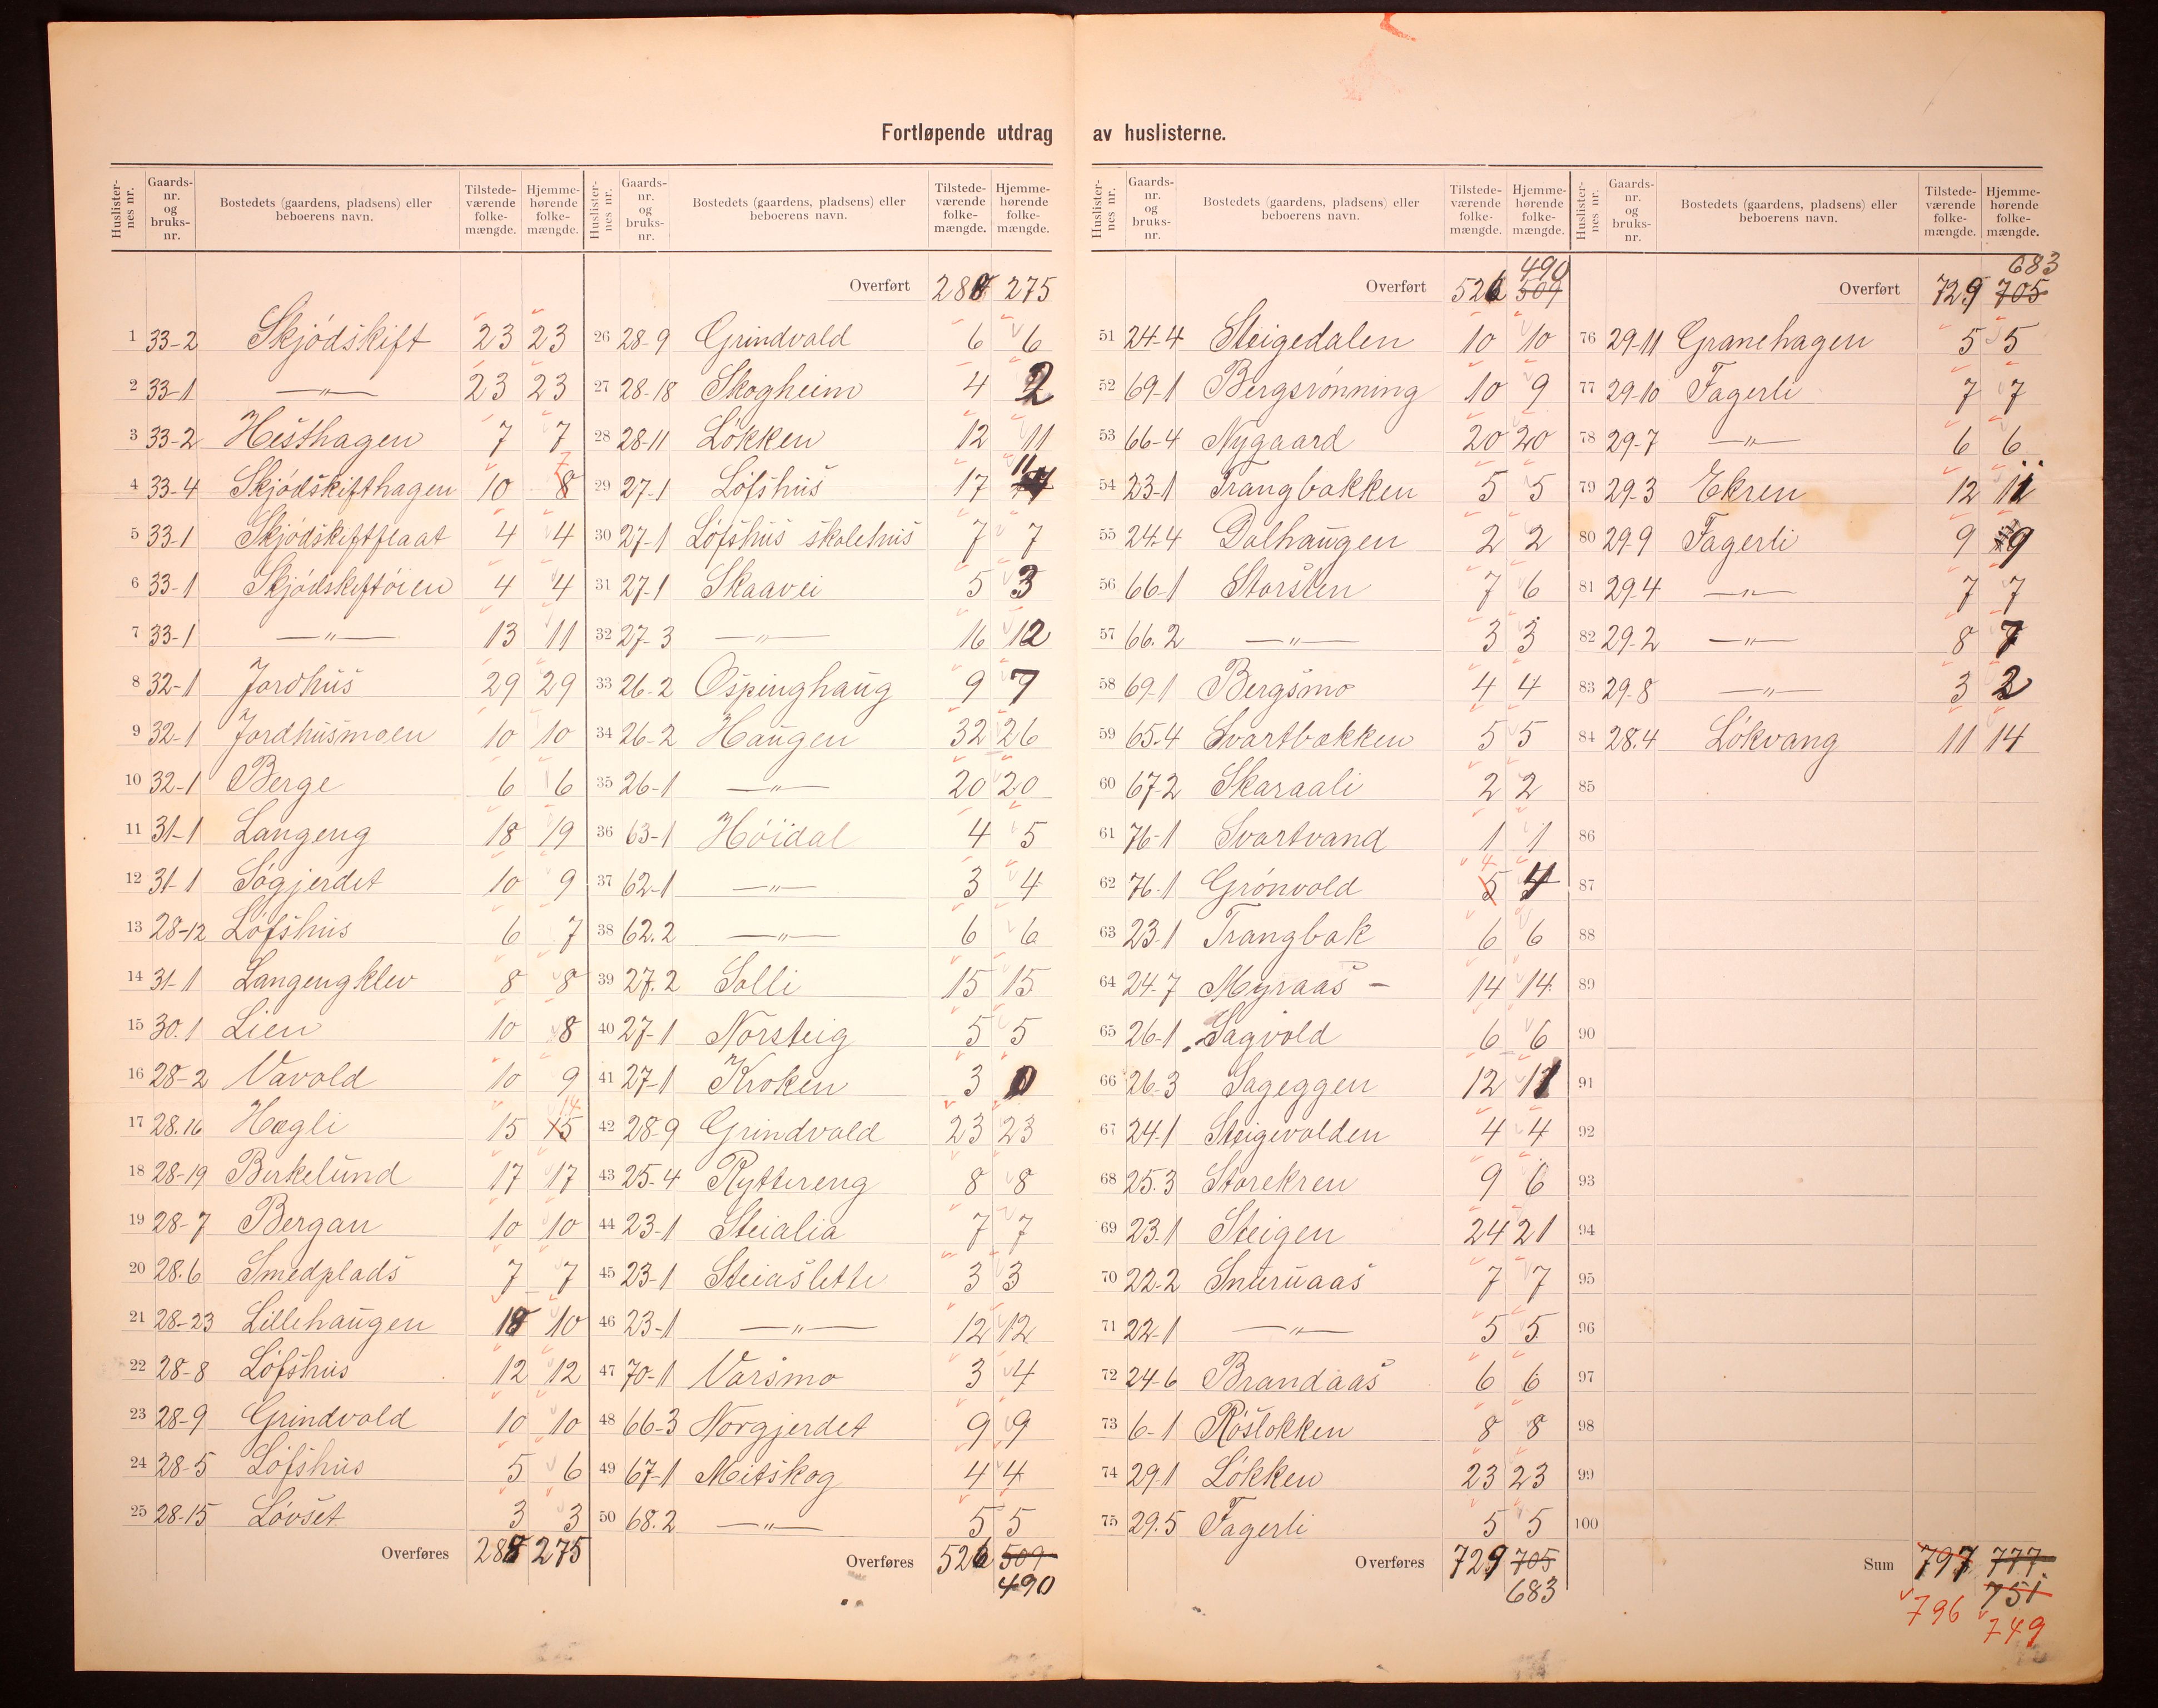 Fortløpende utdrag av huslisterne.
Huslisternes nr. Gaards-nr. og bruks-nr. Bostedets (gaardens, pladsens) eller beboerens navn. Tilstedeværende folkemængde. Hjemmehørende folkemængde.
1 33-2 Skjødskift 23 23
2 33-1 —"— 23 23
3 33-2 Hesthagen 7 7
4 33-4 Skjødskifthagen 10 8 7
5 33-1 Skjødskiftflaat 4 4
6 33-1 Skjødskiftøien 4 4
7 33-1 —"— 13 11
8 32-1 Jordhus 29 29
9 32-1 Jordhusmoen 10 10
10 32-1 Berge 6 6
11 31-1 Langeng 18 19
12 31-1 Søgjerdet 10 9
13 28-12 Løfshus 6 7
14 31-1 Langengklev 8 8
15 30.1 Lien 10 8
16 28-2 Vavold 10 9
17 28.16 Hægli 15 15 14
18 28-19 Birkelund 17 17
19 28-7 Bergan 10 10
20 28.6 Smedplads 7 7
21 28-23 Lillehaugen 18 10
22 28-8 Løfshus 12 12
23 28-9 Grindvold 10 10
24 28-5 Løfshus 5 6
25 28-15 Løvset 3 3
Overføres 288 275
Huslisternes nr. Gaards-nr. og bruks-nr. Bostedets (gaardens, pladsens) eller beboerens navn. Tilstedeværende folkemængde. Hjemmehørende folkemængde.
Overført 288 275
26 28-9 Grindvold 6 6
27 28-18 Skogheim 4 2
28 28-11 Løkken 12 11
29 27-1 Løfshus 17 11
30 27-1 Løfshus skolehus 7 7
31 27-1 Skaavei 5 3
32 27-3 —"— 16 12
33 26-2 Ospinghaug 9 7
34 26-2 Haugen 32 26
35 26-1 —"— 20 20
36 63-1 Høidal 4 5
37 62-1 —"— 3 4
38 62.2 —"— 6 6
39 27.2 Solli 15 15
40 27-1 Norsteig 5 5
41 27-1 Kroken 3 0
42 28-9 Grindvold 23 23
43 25-4 Ryttereng 8 8
44 23-1 Steialia 7 7
45 23-1 Steiaslette 3 3
46 23-1 —"— 12 12
47 70-1 Varsmo 3 4
48 66-3 Norgjerdet 9 9
49 67-1 Meitskog 4 4
50 68.2 —"— 5 5
Overføres 526 509
490
Huslisternes nr. Gaards-nr. og bruks-nr. Bostedets (gaardens, pladsens) eller beboerens navn. Tilstedeværende folkemængde. Hjemmehørende folkemængde.
490
Overført 526 509
51 24-4 Steigedalen 10 10
52 69-1 Bergsrønning 10 9
53 66-4 Nygaard 20 20
54 23-1 Trangbakken 5 5
55 24.4 Dalhaugen 2 2
56 66-1 Storsten 7 6
57 66.2 —"— 3 3
58 69-1 Bergsmo 4 4
59 65-4 Svartbakken 5 5
60 67-2 Skaraali 2 2
61 76-1 Svartvand 1 1
62 76-1 Grønvold 5 4 4
63 23-1 Trangbak 6 6
64 24-7 Myraas - 14 14
65 26-1 Sagvold 6 6
66 26-3 Sageggen 12 11
67 24-1 Steigevolden 4 4
68 25.3 Storekren 9 6
69 23.1 Steigen 24 21
70 22-2 Snuruaas 7 7
71 22-1 —"— 5 5
72 24-6 Brandaas 6 6
73 6-1 Røslokken 8 8
74 29.1 Løkken 23 23
75 29.5 Fagerli 5 5
Overføres 729 705
683
Huslisternes nr. Gaards-nr. og bruks-nr. Bostedets (gaardens, pladsens) eller beboerens navn. Tilstedeværende folkemængde. Hjemmehørende folkemængde.
683
Overført 729 705
76 29-11 Granehagen 5 5
77 29-10 Fagerli 7 7
78 29-7 —"— 6 6
79 29-3 Ekren 12 11
80 29-9 Fagerli 9 9
81 29.4 —"— 7 7
82 29.2 —"— 8 7
83 29-8 —"— 3 2
84 28.4 Løkvang 11 14
85
86
87
88
89
90
91
92
93
94
95
96
97
98
99
100
Sum 797 777
751
796 749